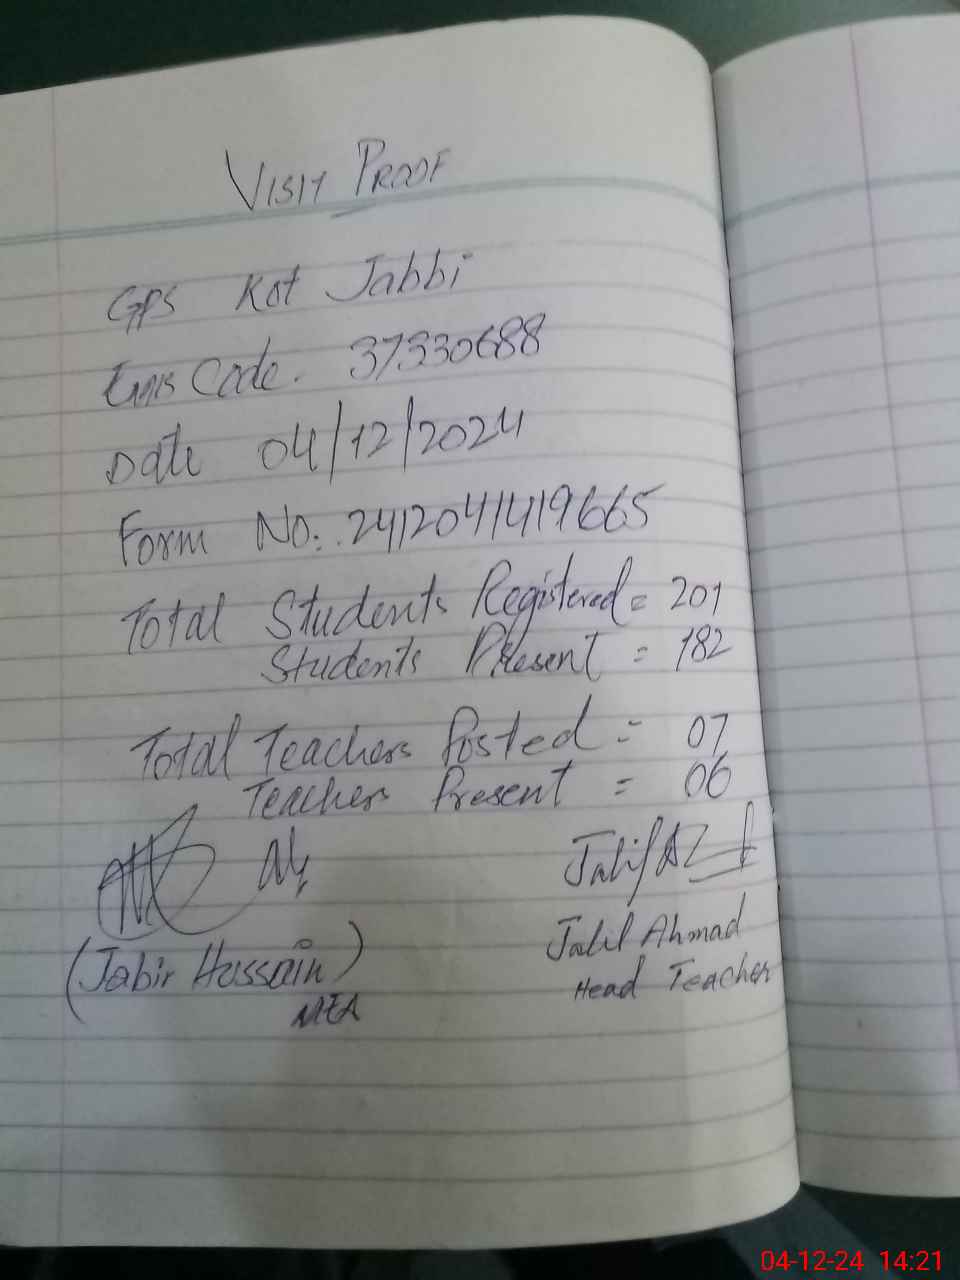 VISIT PROOF
GPS Kot Jabbi
Emis Code. 37330688
Date 04/12/2024
Form No: 2412041419665
Total Students Registered = 201
Students Present = 182
Total Teachers Posted = 07
Teachers Present = 06
Jalil
(Jabir Hussain)
MEA
Jalil Ahmad
Head Teacher
04-12-24 14:21